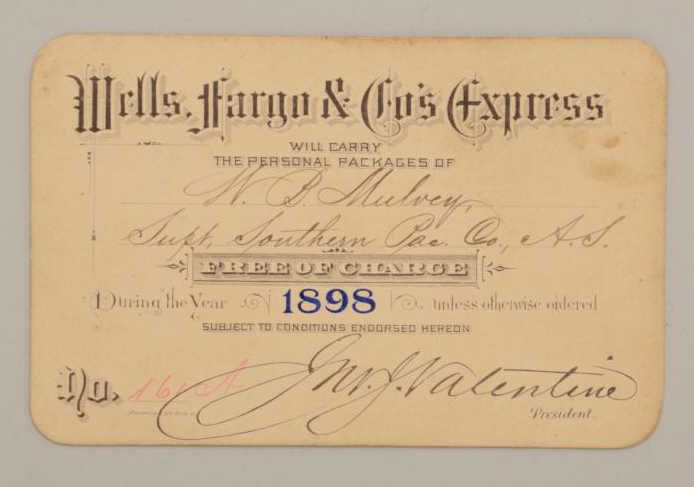 Wells, Fargo & Co's Express
WILL CARRY
THE PERSONAL PACKAGES OF
W. B. Mulvey,
Supt. Southern Pac. Co., A. S.
FREE OF CHARGE
During the Year 1898 unless otherwise ordered
SUBJECT TO CONDITIONS ENDORSED HEREON
No.
Jno. J. Valentine
President.